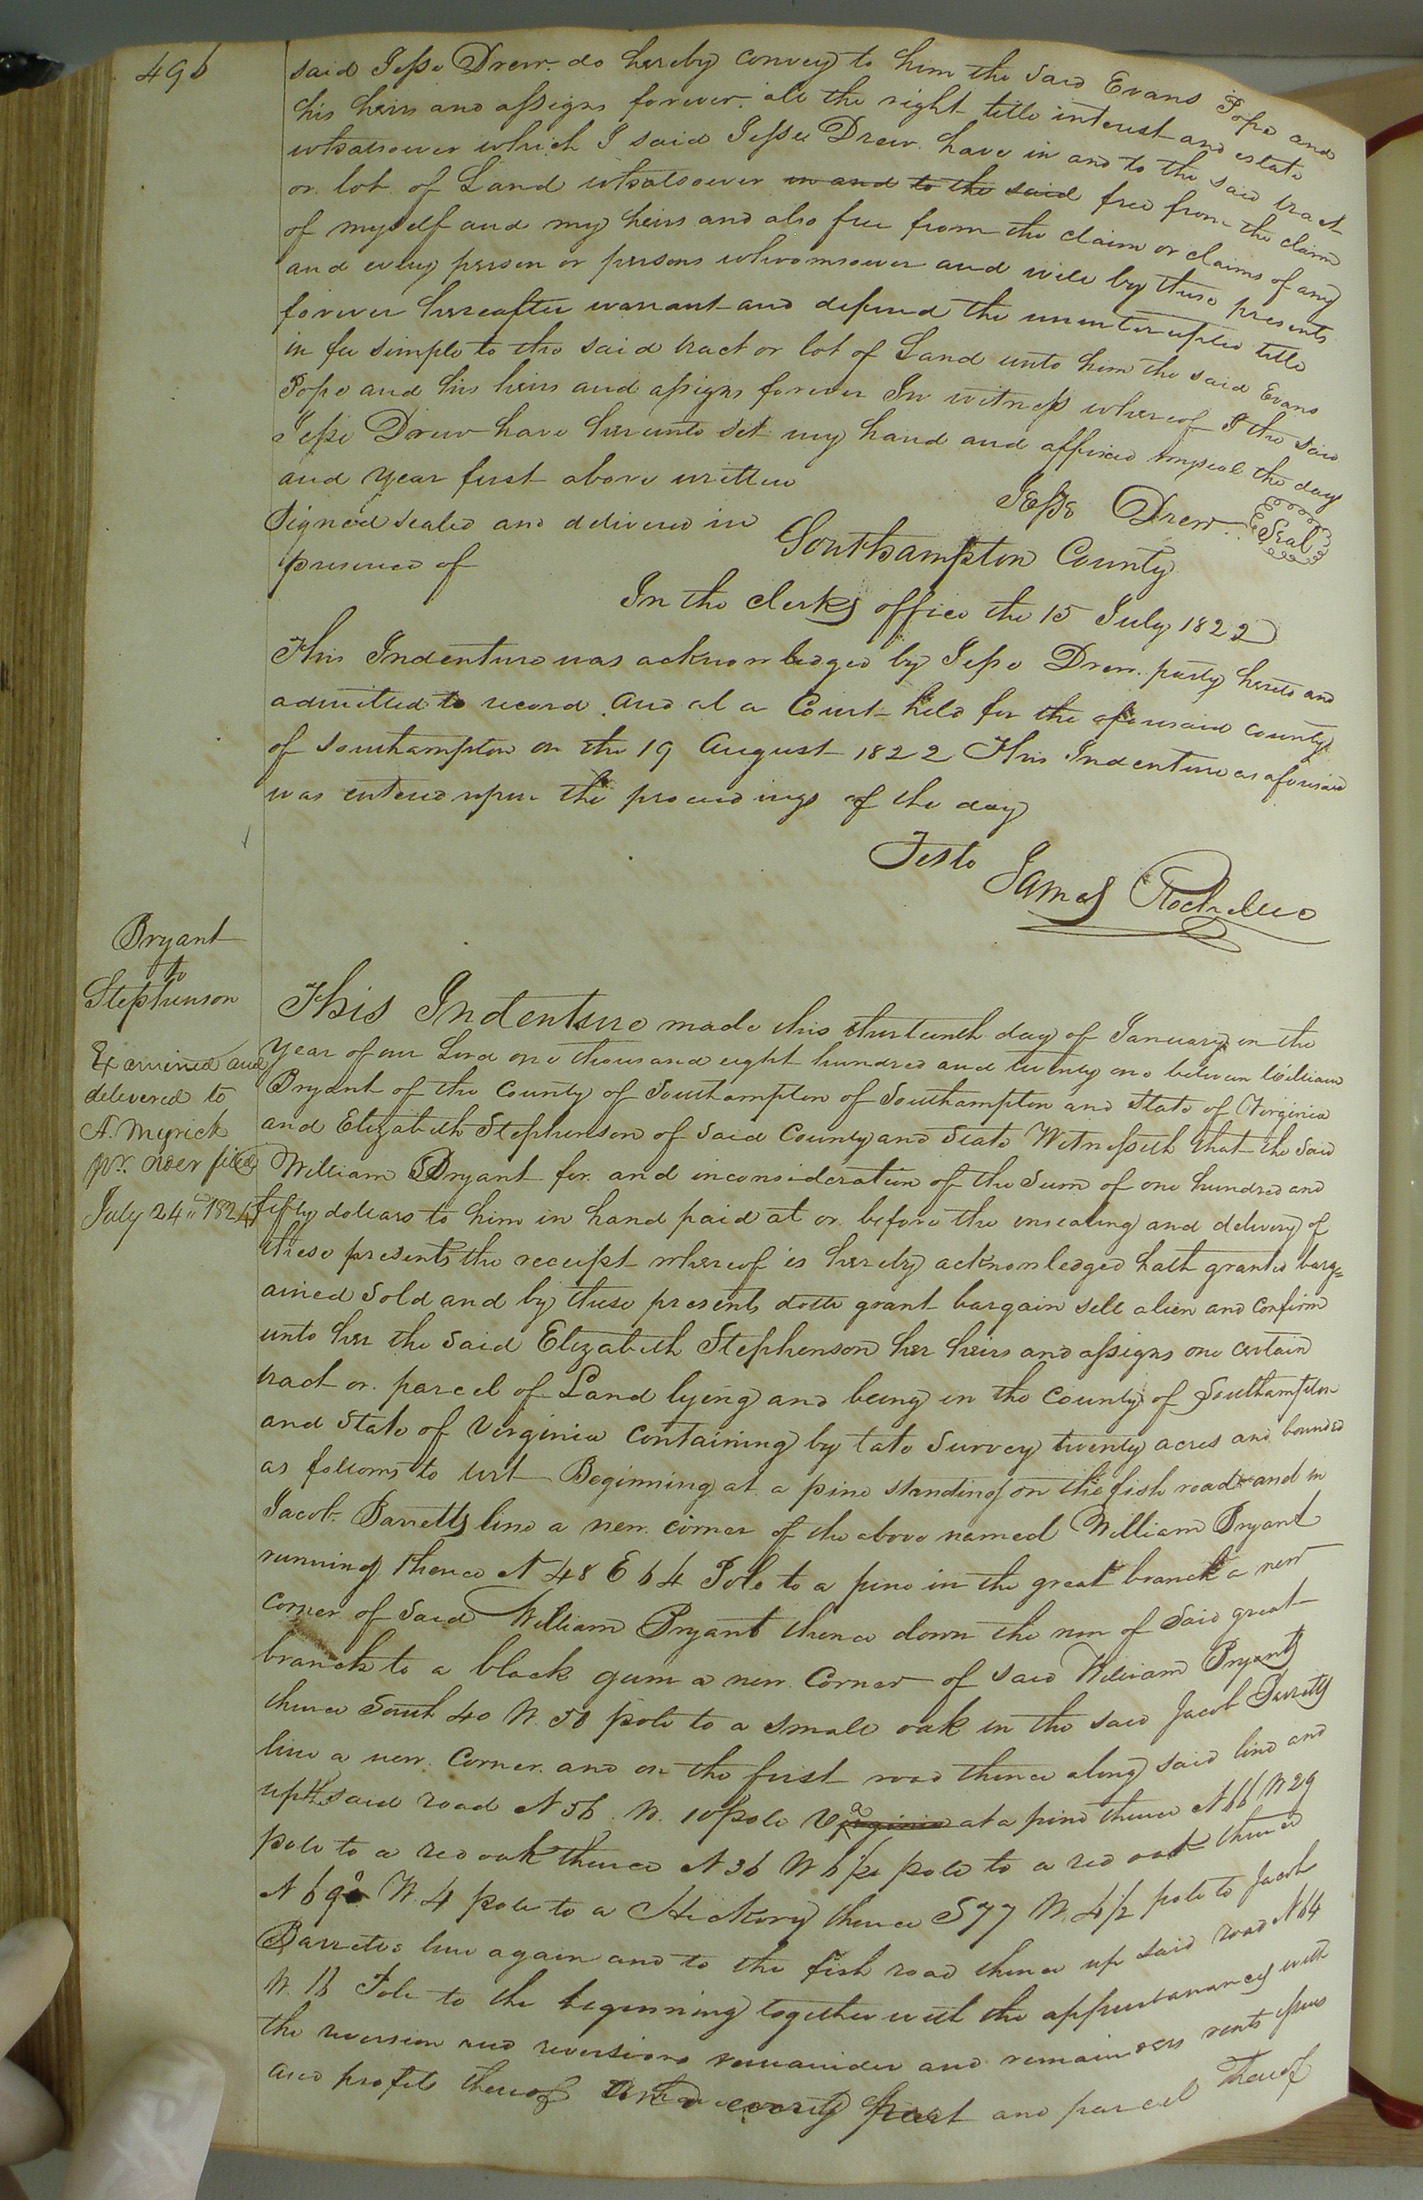 496
said Jesse Drew do hereby convey to him the said Evans Pope and
his heirs and assigns forever all the right title interest and estate
whatsoever which I said Jesse Drew have in and to the said tract
or lot of Land whatsoever in and to the said free from the claim
of myself and my heirs and also free from the claim or claims of any
and every person or persons whomsoever and will by these presents
forever hereafter warrant and defend the uninterupted title
in fee simple to the said tract or lot of Land unto him the said Evans
Pope and his heirs and assigns forever In witness whereof I the said
Jesse Drew have hereunto set my hand and affixed my seal the day
and year first above written
Jesse Drew Seal
Signed sealed and delivered in
presence of
Southampton County
In the clerks office the 15 July 1822
This Indenture was acknowledged by Jesse Drew party hereto and
admitted to record and at a Court held for the aforesaid county
of Southampton on the 19 August 1822 This Indenture as aforesaid
was entered upon the proceedings of the day
Teste James Rochelle
Bryant
to
Stephenson
Examined and
delivered to
A. Myrick
pr. order filed
July 24" 1824
This Indenture made this thirteenth day of January in the
year of our Lord one thousand eight hundred and twenty one between William
Bryant of the County of Southampton of Southampton and State of Virginia
and Elizabeth Stephenson of said County and State Witnesseth that the said
William Bryant for and in consideration of the sum of one hundred and
fifty dollars to him in hand paid at or before the ensealing and delivery of
these presents the receipt whereof is hereby acknowledged hath granted barg=
ained sold and by these presents doth grant bargain sell alien and confirm
unto her the said Elizabeth Stephenson her heirs and assigns one certain
tract or parcel of Land lying and being in the County of Southampton
and State of Virginia containing by late survey twenty acres and bounded
as follows to wit Beginning at a pine standing on the fish road and in
Jacob Barretts line a new corner of the above named William Bryant
running thence N 48 E 64 Pole to a pine in the great branch a new
corner of said William Bryant thence down the run of said great
branch to a black gum a new Corner of said William Bryants
thence South 40 W. 58 pole to a small oak in the said Jacob Barretts
line a new Corner and on the first road thence along said line and
up the said road N 56 W. 10 pole at a pine thence N 66 W 29
pole to a red oak thence N 36 W 6 1/2 pole to a red oak thence
N 69 W. 4 pole to a Hickory thence S 77 W. 4 1/2 pole to Jacob
Barretts line again and to the fish road thence up said road N 64
W. 18 Pole to the beginning together with the appurtenances with
the reversion and reversions remainder and remainders rents issues
and profits thereof and every part and parcel thereof